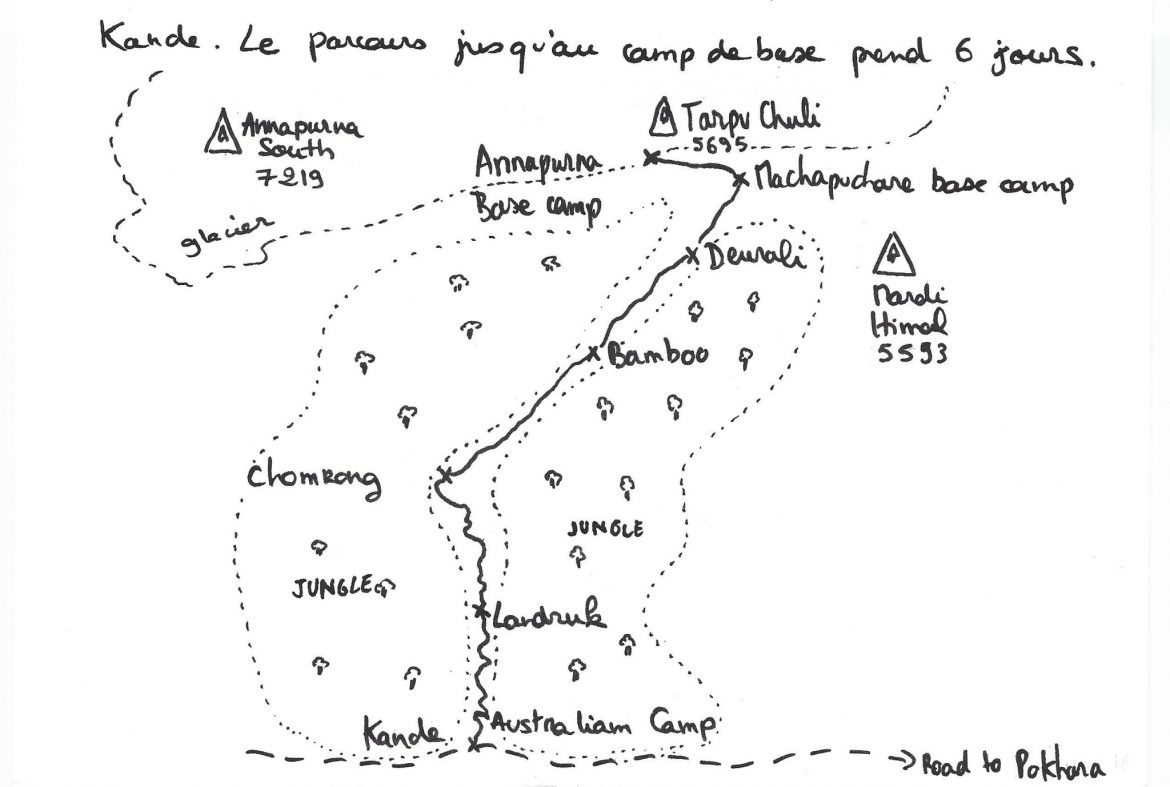 Kande. Le parcours jusqu'au camp de base prend 6 jours.
Annapurna
South
7219
Tarpu Chuli
5695
Annapurna
Base camp
Machapuchare base camp
glacier
Deurali
Mardi
Himal
5593
Bamboo
Chomrong
JUNGLE
JUNGLE
Landruk
Australiam Camp
Kande
Road to Pokhara